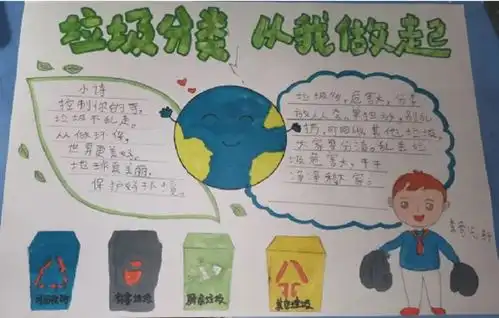 垃圾分类 从我做起
小诗
控制你的手,
垃圾不乱走,
从做环保,
世界更美好,
地球真美丽,
保护好环境。
垃圾多,危害大,分类
放人人夸。果皮
扔,可回收其他垃圾,
大家要分清。乱丢垃
圾危害大,千千
净净
可回收物
有害垃圾
厨余垃圾
其它垃圾